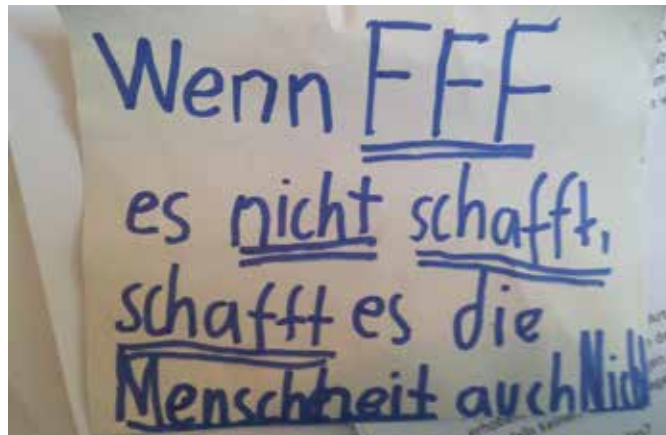 Wenn FFF
es nicht schafft,
schafft es die
Menschheit auch Nicht